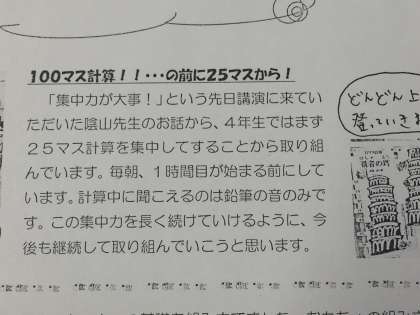 100マス計算!!・・・の前に25マスから!
「集中力が大事!」という先日講演に来てい
ただいた陰山先生のお話から、4年生ではまず
25マス計算を集中してすることから取り組
んでいます。毎朝、1時間目が始まる前にして
います。計算中に聞こえるのは鉛筆の音のみで
す。この集中力を長く続けていけるように、今
後も継続して取り組んでいこうと思います。
どんどん上
登っていき